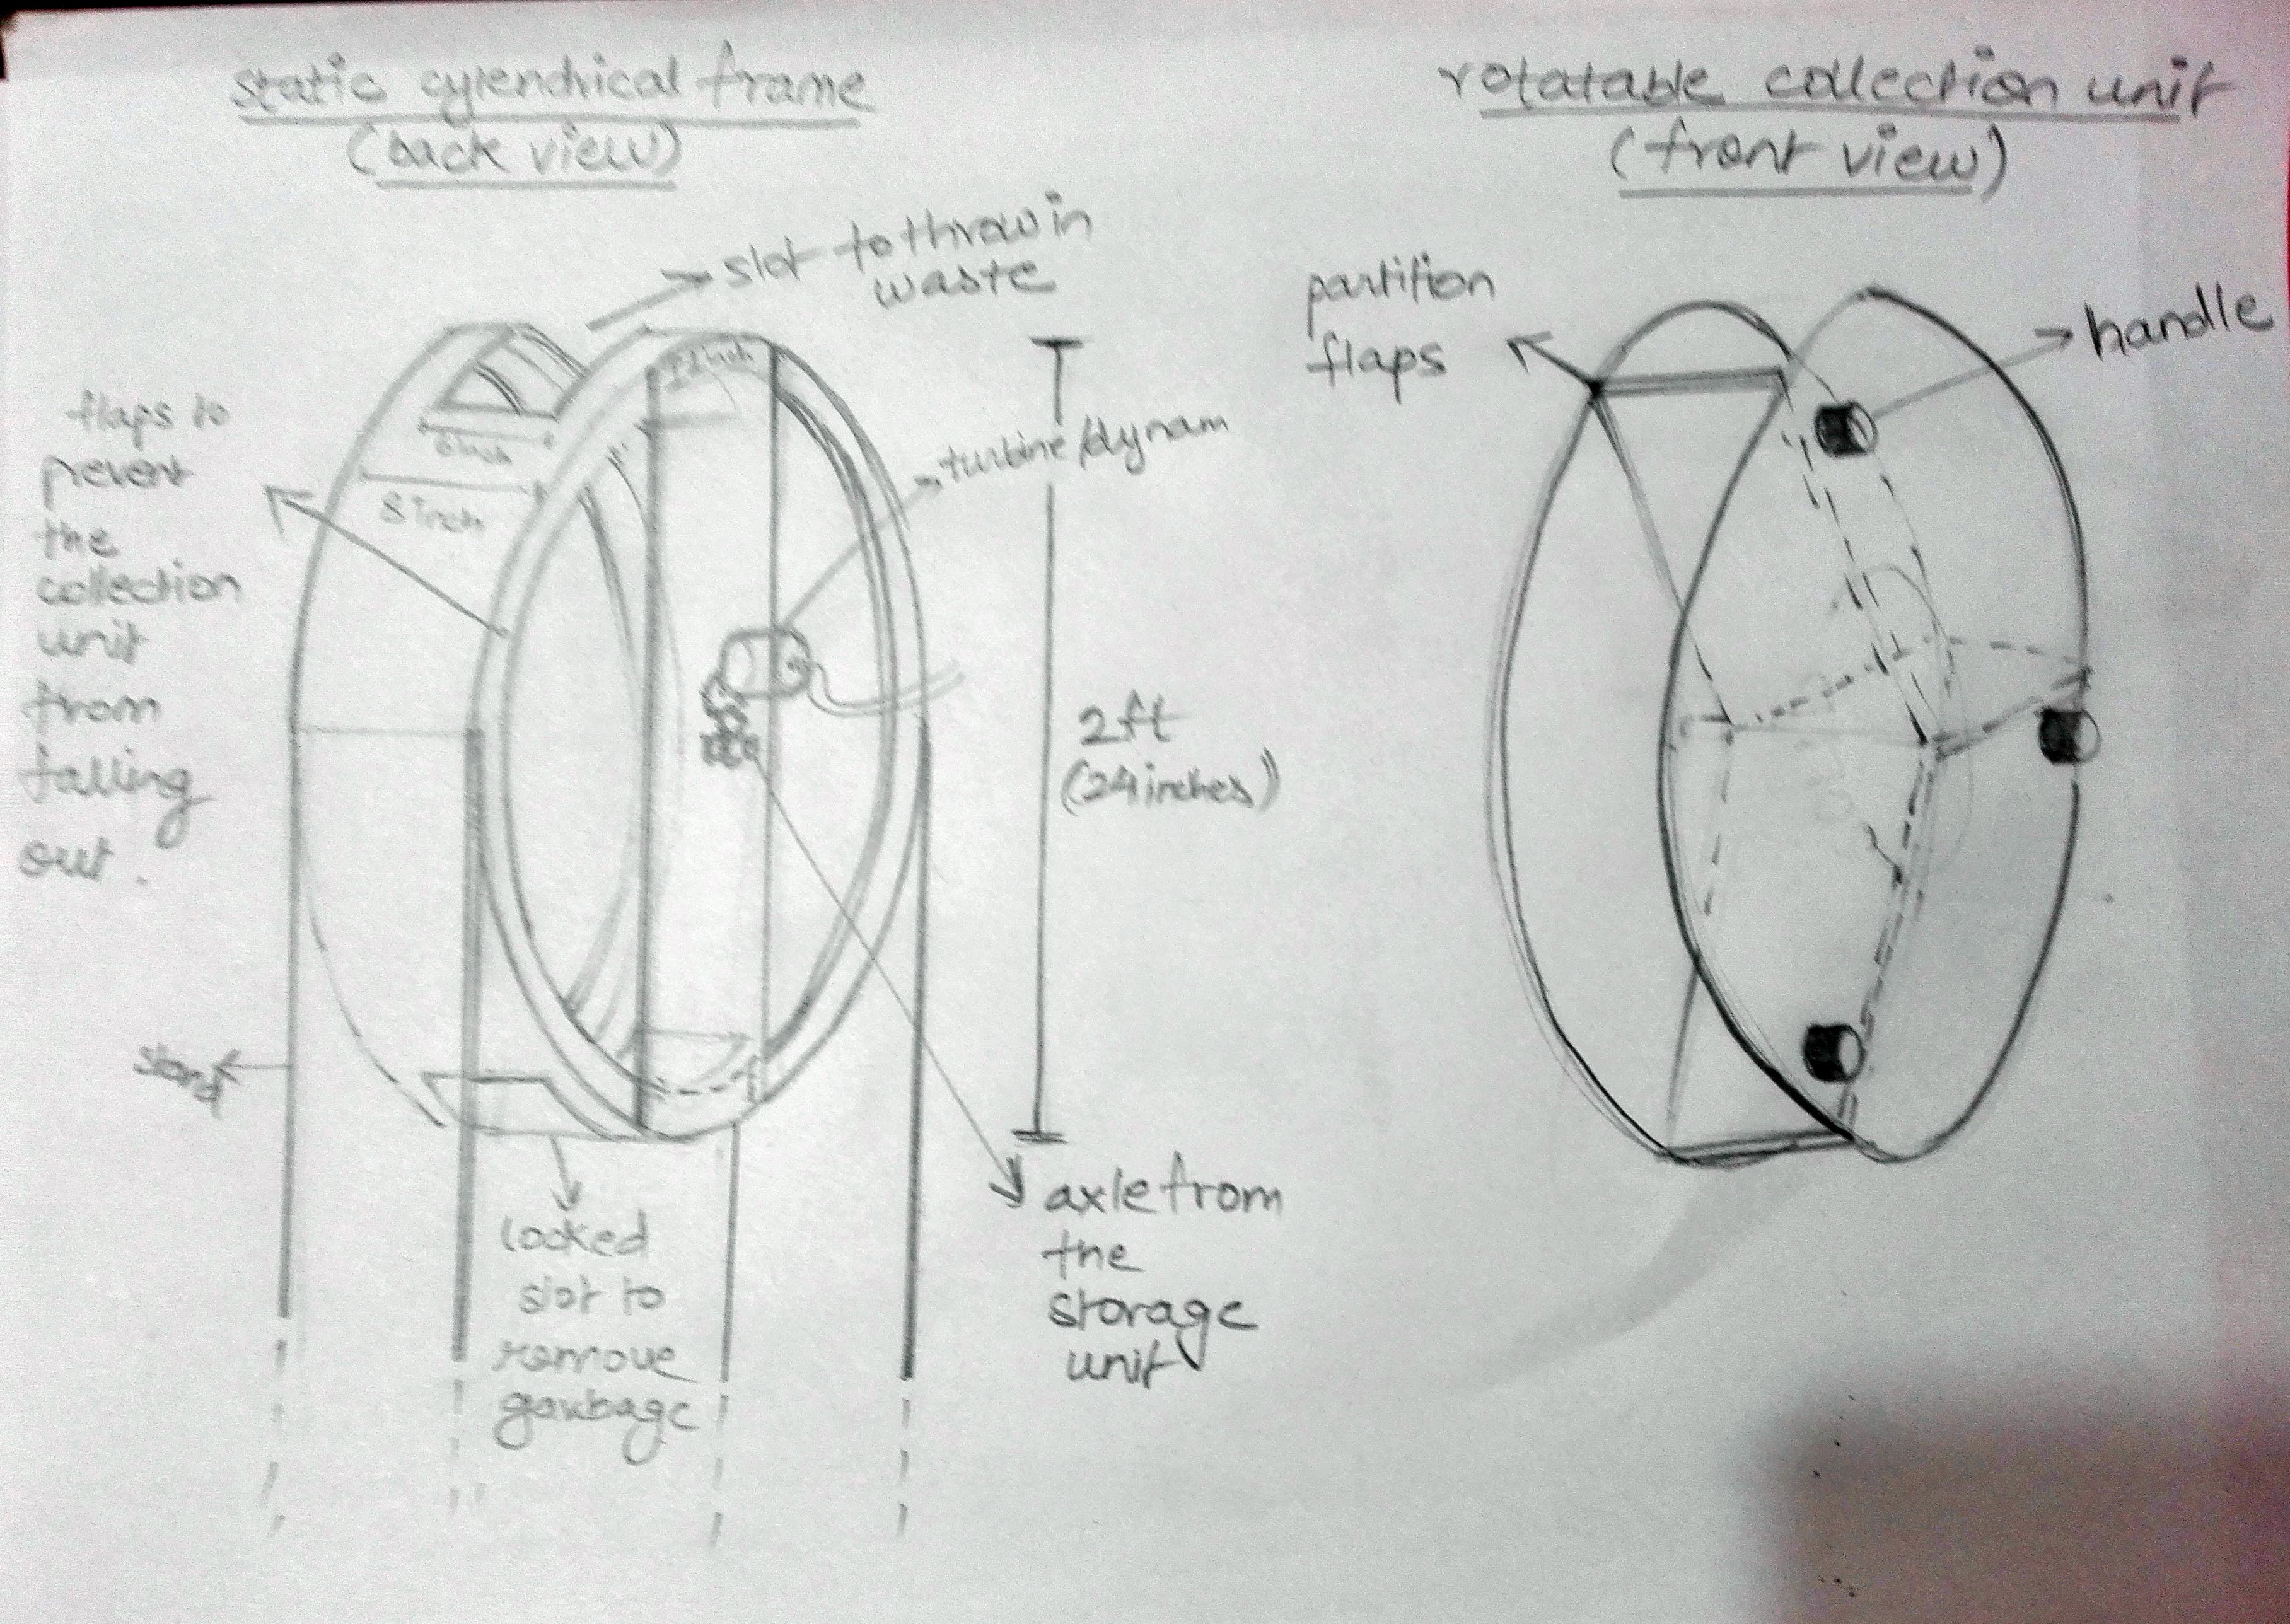 static cylendrical frame
(back view)
slot to throw in
waste
flaps to
prevent
the
collection
unit
from
falling
out.
6inch
8 inch
turbine/dynam
2ft
(24inches)
stand
locked
slot to
remove
garbage
axle from
the
storage
unit
rotatable collection unit
(front view)
partition
flaps
handle